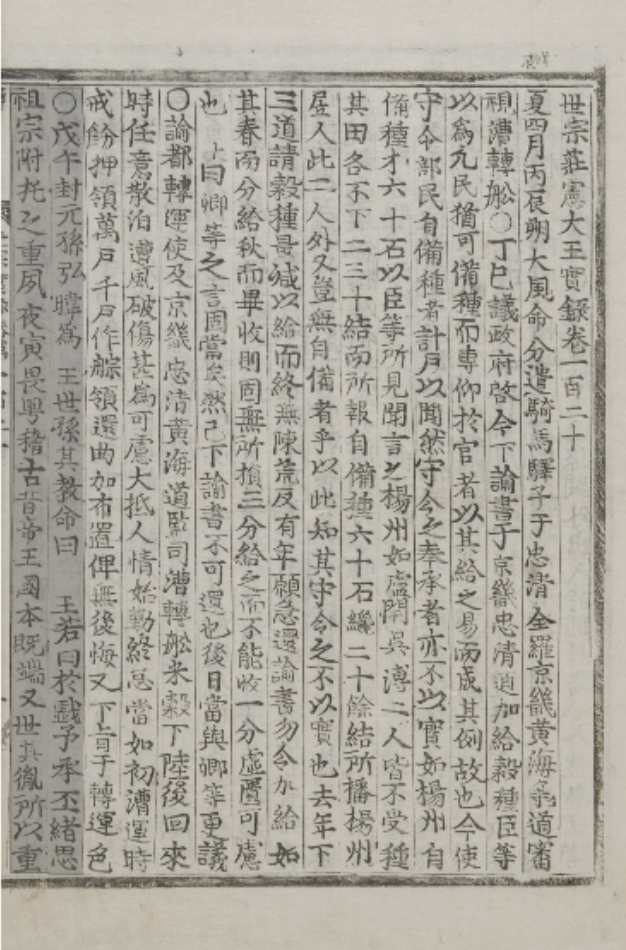 世宗莊憲大王實錄卷一百二十
夏四月丙辰朔大風命分遣騎馬驛子于忠淸全羅京畿黃海等道審
視漕轉船○丁巳議政府啓今下諭書于京畿忠淸道加給穀種臣等
以爲凡民猶可備種而專仰於官者以其給之易而成其例故也今使
守令部民自備種者計戶以聞然守令之奉承者亦不以實如楊州自
備種才六十石以臣等所見聞言之楊州如盧閈吳溥二人皆不受種
其田各不下二三十結而所報自備種六十石纔二十餘結所播楊州
居人此二人外又豈無自備者乎以此知其守令之不以實也去年下
三道請穀種量減以給而終無陳荒反有年願急還諭書勿令加給如
其春而分給秋而畢收則固無所損三分給之而不能收一分虛匱可慮
也 上曰卿等之言固當矣然已下諭書不可還也後日當與卿等更議
○諭都轉運使及京畿忠淸黃海道監司漕轉船米穀下陸後回來
時任意散泊遭風破傷甚爲可慮大抵人情始勤終怠當如初漕運時
戒飭押領萬戶千戶作䑸領還曲加布置俾無後悔又下旨于轉運色
○戊午封元孫弘暐爲 王世孫其敎命曰 王若曰於戱予承丕緖思
祖宗附托之重夙夜寅畏粤稽古昔帝王國本旣端又世其胤所以重